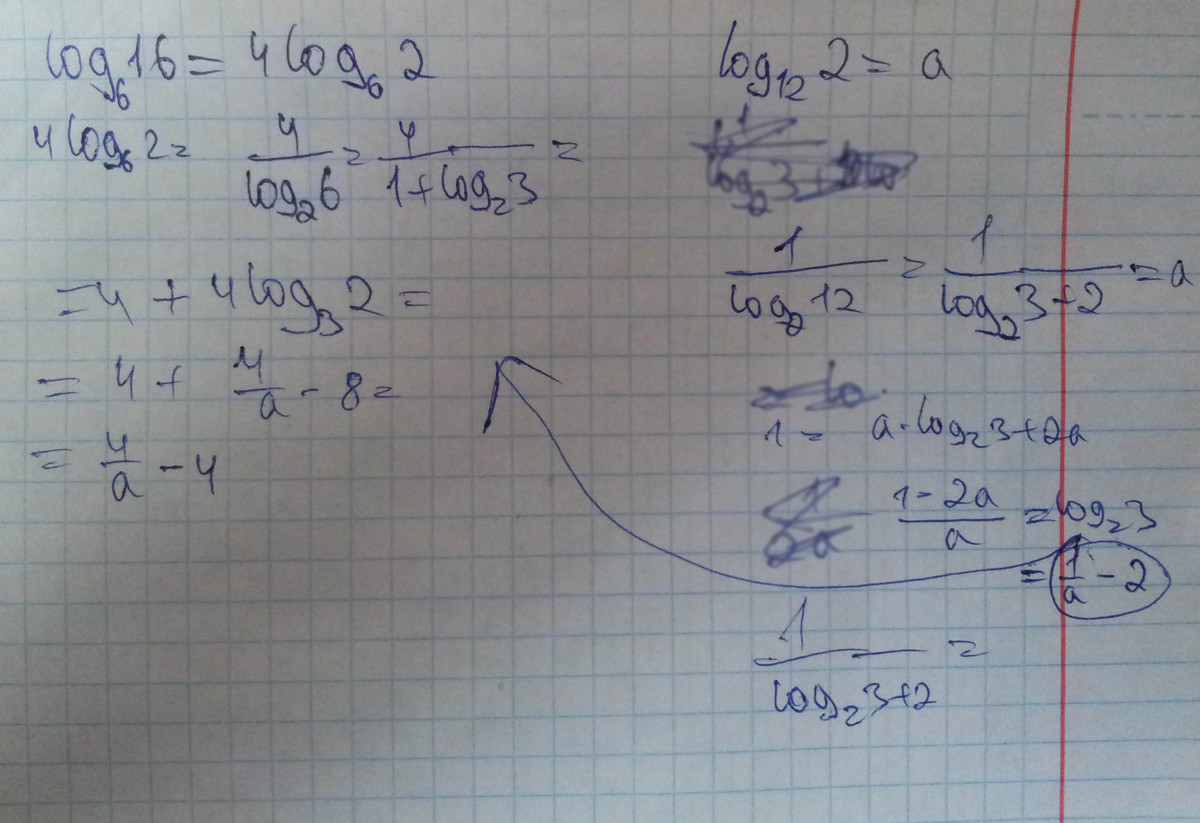 log₆16 = 4log₆2
4log₆2 = 4/log₂6 = 4/(1+log₂3) =
= 4 + 4log₃2 =
= 4 + 4/a - 8 =
= 4/a - 4
log₁₂2 = a
1/log₂12 = 1/(log₂3+2) = a
1 = a·log₂3+2a
(1-2a)/a = log₂3
= 1/a - 2
1/(log₂3+2) =